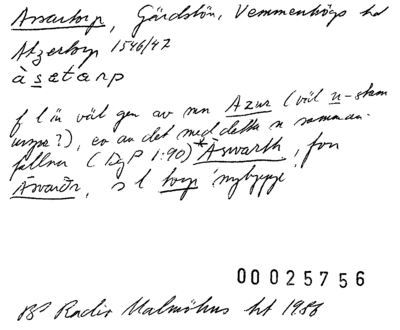 Assartorp, Gärdslöv, Vemmenhögs hd
Atzertorp 1546/47
àsatárp
f l är väl gen av mn Azur (väl u-stam
urspr?), ev av det med detta n samman-
fallna (DgP 1:90) *Āswarth, fvn
Āsvarðr, s l torp 'nybygge'
00025756
BP Radix Malmöhus ht 1986